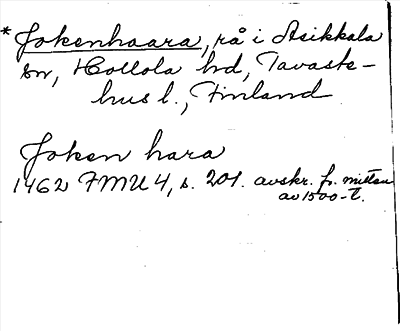 *Jokenhaara, rå i Asikkala
sn, Hollola hd, Tavaste-
hus l., Finland
Joken hara
1462 FMU 4, s. 201. avskr. fr. mitten
av 1500-t.